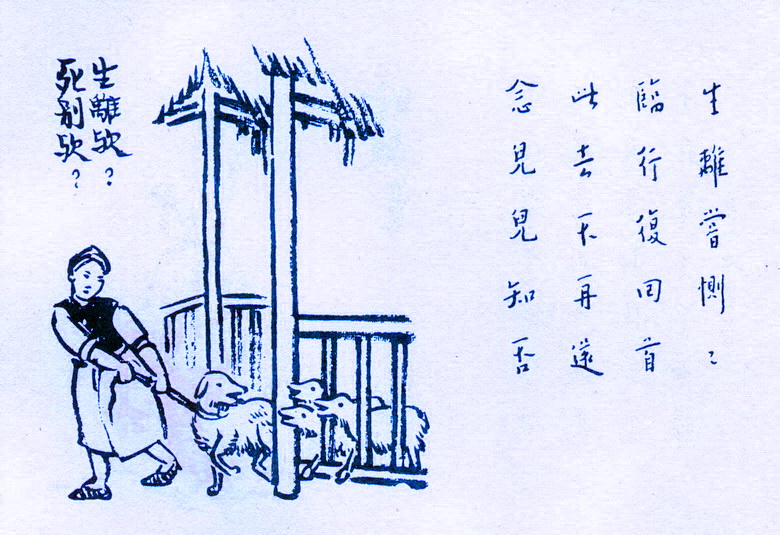 生離嘗惻〻
臨行復回首
此去不再還
念兒兒知否
生離欤？
死别欤？